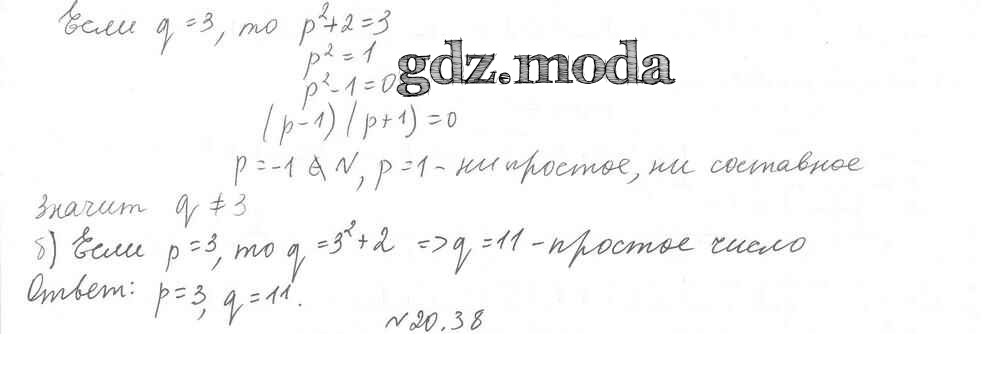 Если q = 3, то p²+2=3
p² = 1
p²-1=0
gdz.moda
(p-1)(p+1)=0
p=-1 ∉ N, p=1 - ни простое, ни составное
Значит q ≠ 3
б) Если p=3, то q =3²+2 => q =11 - простое число
Ответ: p=3, q=11.
№20.38